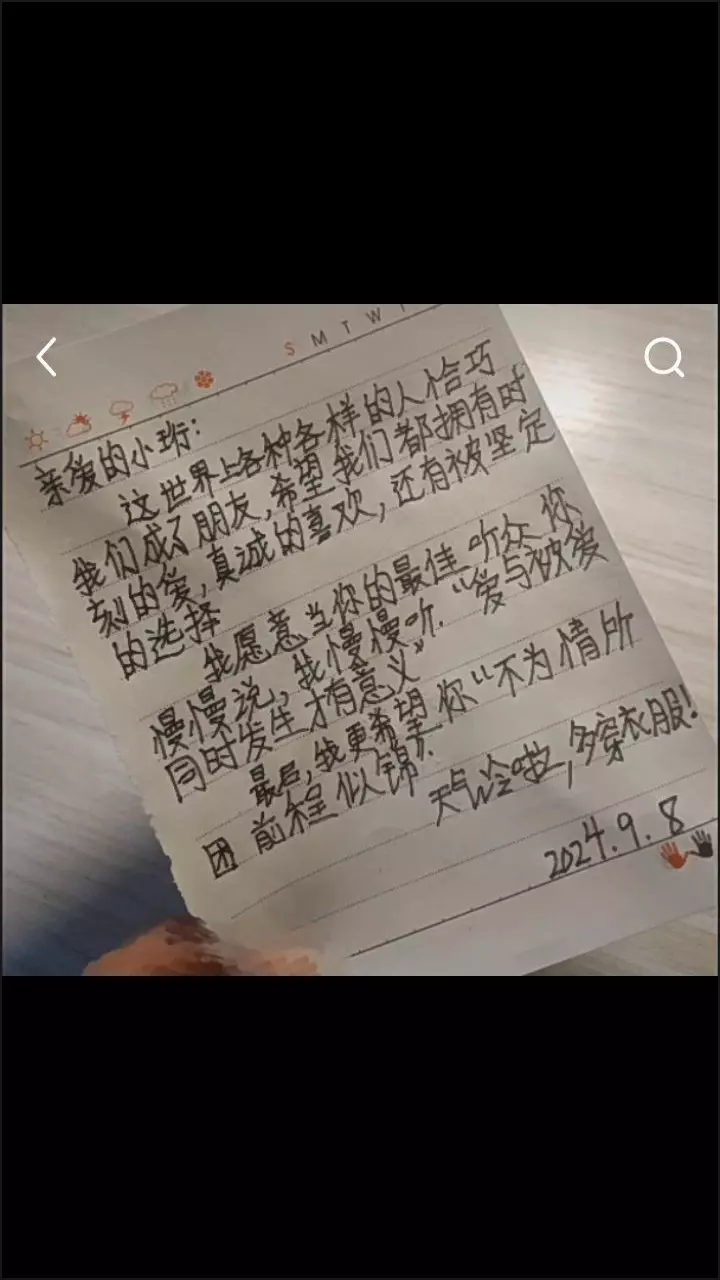 S M T W T
亲爱的小珩:
这世界上各种各样的人恰巧
我们成了朋友,希望我们都拥有时
刻的爱,真诚的喜欢,还有被坚定
的选择
我愿意当你的最佳听众 你
慢慢说,我慢慢听.“爱与被爱
同时发生才有意义”
最后,我更希望你“不为情所
团 前程似锦”.
天气冷啦,多穿衣服!
2024.9.8